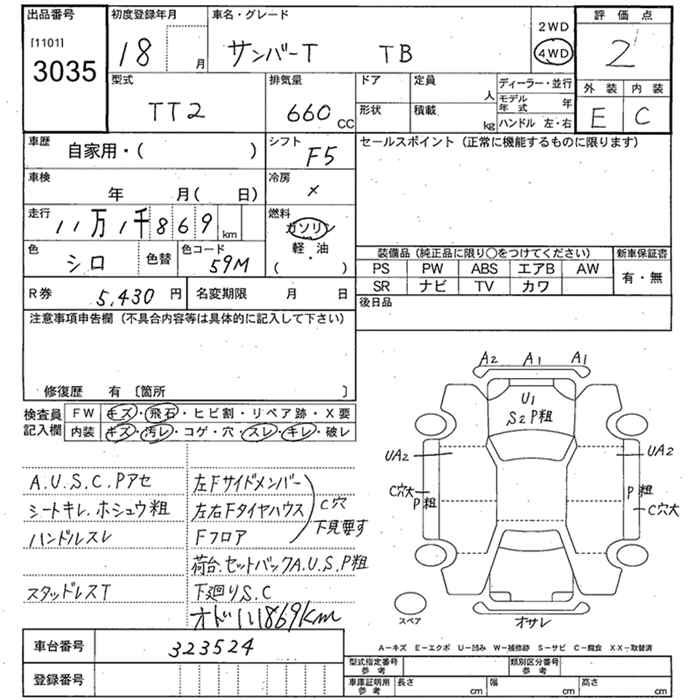 出品番号
[1101]
3035
初度登録年月
18 月
車名・グレード
サンバーT TB
2WD
4WD
評価点
2
外装 内装
E C
型式
TT2
排気量
660 CC
ドア
形状
定員
人
積載
kg
ディーラー・並行
モデル年式 年
ハンドル 左・右
車歴
自家用・( )
シフト
F5
セールスポイント (正常に機能するものに限ります)
車検
年 月( 日)
冷房
×
走行
11万1千869km
燃料
ガソリン
軽・油
( )
色
シロ
色替
色コード
59M
装備品 (純正品に限り○をつけてください)
新車保証書
PS PW ABS エアB AW
有・無
SR ナビ TV カワ
R券
5,430 円
名変期限 月 日
後日品
注意事項申告欄 (不具合内容等は具体的に記入して下さい)
修復歴 有 〔箇所 〕
検査員記入欄
FW キズ・飛石・ヒビ割・リペア跡・X要
内装 キズ・汚レ・コゲ・穴・スレ・キレ・破レ
A.U.S.C.Pアセ
シートキレ.ホシュウ粗
ハンドルスレ
スタッドレスT
左Fサイドメンバー
左右Fタイヤハウス
Fフロア
C穴
下見要す
荷台.セットバックA.U.S.P粗
下廻りS.C
オド111869km
A2 A1 A1
U1
S2P粗
UA2
UA2
C穴大
P粗
P粗
C穴大
スペア
オサレ
A−キズ E−エクボ U−凹み W−補修跡 S−サビ C−腐食 XX−取替済
車台番号
323524
登録番号
型式指定番号 参考
類別区分番号 参考
車庫証明用 参考
長さ cm
幅 cm
高さ cm